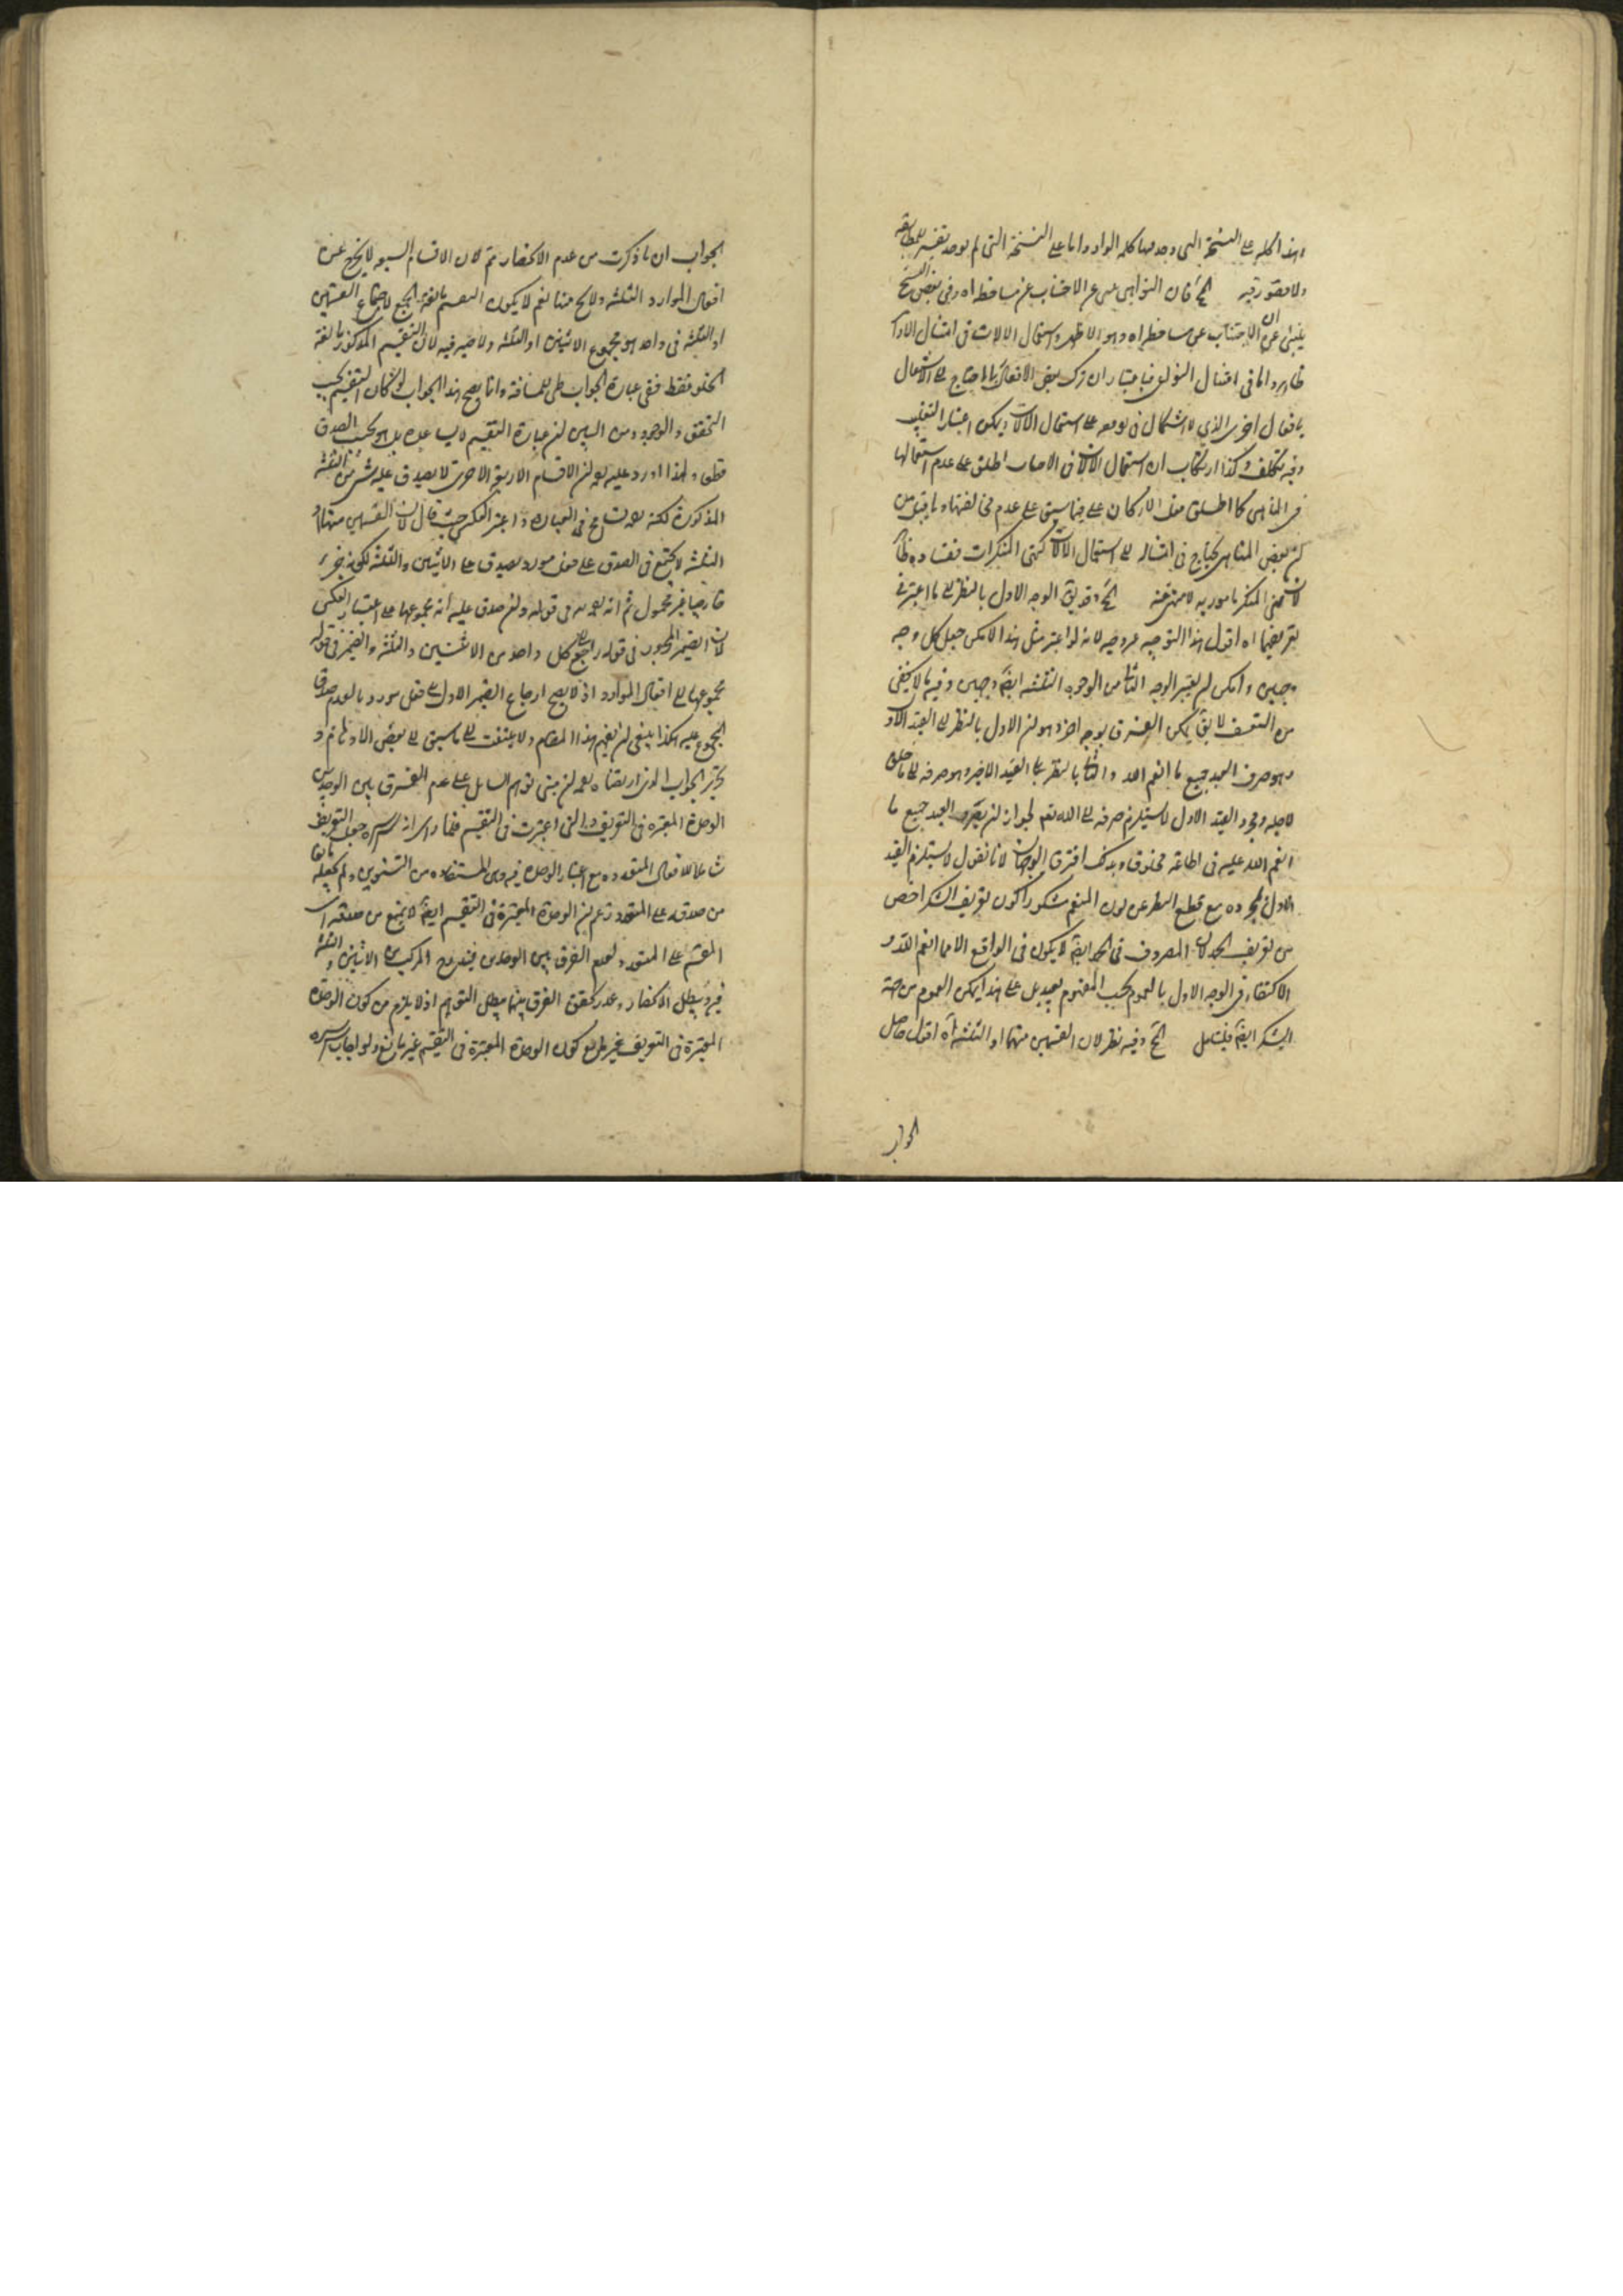 وهذا كله على النسخة التي وجد فيها كلمة الواو واما على النسخة التي لم يوجد
ولا قصور فيه فان النواهي عن الاجتناب عن مساخطه اه وفي بعض النسخ
الاجتناب عن مساخطه اه وهو الاظهر استعمال الالات في امتثال الاوامر
ظاهر واما في امتثال النواهي فباعتبار ان ترك بعض الافعال مما يحتاج الى الاشتغال
بافعال اخرى الذي لا اشكال في على استعمال الالات ويمكن اعتبار التغليب
وفيه تكلف وكذا ارتكاب ان استعمال الالات في اطلق على عدم استعمالها
في المناهي كما اطلق فعل الاركان على فيما سبق على عدم مخالفتها وما قيل من
ان بعض المناهي يحتاج في امتثاله الى استعمال الالات كنهي المنكرات ففساده ظاهر
لان نهي المنكر مامور به لا منهي عنه الوجه الاول بالنظر الى ما اعتبر في
تعريضها اه اقول هذا التوجيه غير وجيه لانه لو اعتبر مثل هذا لامكن جعل كل وجه
وجهين وامكن لم يعتبر الوجه الثاني من الوجوه الثلثة ايضا وجهين وفيه ما لا يخفى
من التعسف لا يقال يمكن الفرق بوجه اخر وهو ان الاول بالنظر الى القيد الاول
وهو صرف العبد جميع ما انعم الله والثاني بالنظر الى القيد الاخير وهو صرفه الى ما خلق
لاجله ومجرد القيد الاول لا يستلزم صرفه الى الله تعم لجواز ان يصرف العبد جميع ما
انعم الله عليه في اطاعة مخلوق وبذلك افترق الوجهان لانا نقول لا يستلزم القيد
الاول مع قطع النظر عن كون المنعم مشكورا كون تعريف الشكر اخص
من تعريف الحمد لان المصروف في الحمد ايضا لا يكون في الواقع الا مما انعم الله و
الاكتفاء في الوجه الاول بالعموم بحسب المفهوم على هذا يمكن العموم من جهة
الشكر ايضا فليتامل الخ وفيه نظر لان القسمين منهما او الثلثة اه اقول حاصل
الجواب
الجواب ان ما ذكرت من عدم الانحصار تم لان الاقسام السبعة لا يخرج عن
افعال الموارد الثلثة ولا يخ منها نعم لا يكون التقسيم مانعة الجمع لاجتماع القسمين
او الثلثة في واحد هو مجموع الاثنين او الثلثة ولا ضير فيه لان التقسيم المذكور مانعة
الخلو فقط ففي عبارة الجواب طي للمسافة وانما يصح هذا الجواب لو كان التقسيم بحسب
التحقق والوجود ومن البين ان عبارة التقسيم لا يساعده بل هو بحسب الصدق
قطعا ولهذا اورد عليه ان الاقسام الاربعة الاخرى لا يصدق عليه شيء من الثلثة
المذكورة لكنه تسامح في العبارة واعتبر العكس حيث قال لان القسمين منهما او
الثلثة لا يجتمع في الصدق على فعل مورد يصدق على الاثنين والثلثة لكونه جزء
خارجيا غير محمول ثم انه في قوله وان صدق عليه انه مجموعها على اعتبار العكس
لان الضمير المجرور في قوله راجع الى كل واحد من الاثنين والثلثة والضمير في قوله
مجموعها الى افعال الموارد اذ لا يصح ارجاع الضمير الاول الى فعل مورد ما لعدم صدق
المجموع عليه هكذا ينبغي ان يفهم هذا المقام ولا يلتفت الى ما سبق الى بعض الاوهام و
الجواب الذي ارتضاه ان مبنى توهم السائل على عدم الفرق بين الوحدتين
الوحدة المعتبرة في التعريف والتي اعتبرت في التقسيم فلما راى انه قدس سره جعل التعريف
شاملا للافعال المتعددة مع اعتبار الوحدة فيه وهي المستفادة من التنوين ولم يجعله مانعا
من صدقه على المتعدد زعم ان الوحدة المعتبرة في التقسيم ايضا لا يمنع من صدقه اي
المقسم على المتعدد لعدم الفرق بين الوحدتين فيندرج المركب من الاثنين والثلثة
فيه ويبطل الانحصار وعند تحقق الفرق بينهما يبطل التوهم اذ لا يلزم من كون الوحدة
المعتبرة في التعريف غير مانع كون الوحدة المعتبرة في التقسيم غير مانع ولو اجاب سره